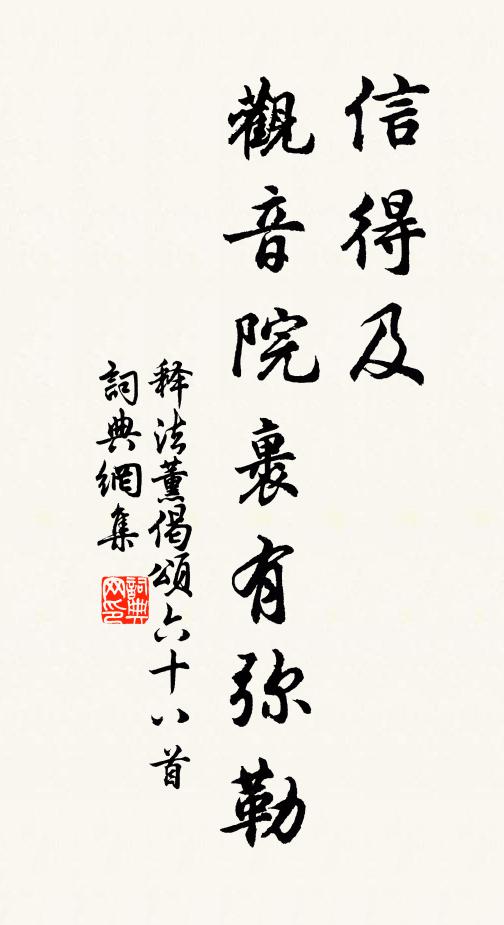 信得及
觀音院裹有弥勒
释法薰偈頌六十八首
詞典網集
詞典网印